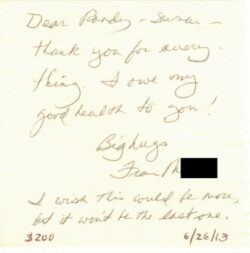 Dear Randy & Susan –
thank you for every-
thing. I owe my
good health to you!
Big hugs
Fran
I wish this could be more,
but it won't be the last one.
$200 6/26/13